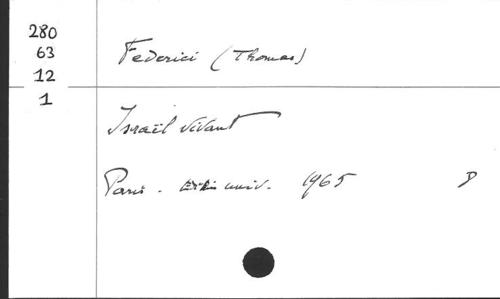 280
63
12
1
Federici (Thomas)
Israël vivant
Paris - univ. 1965 P